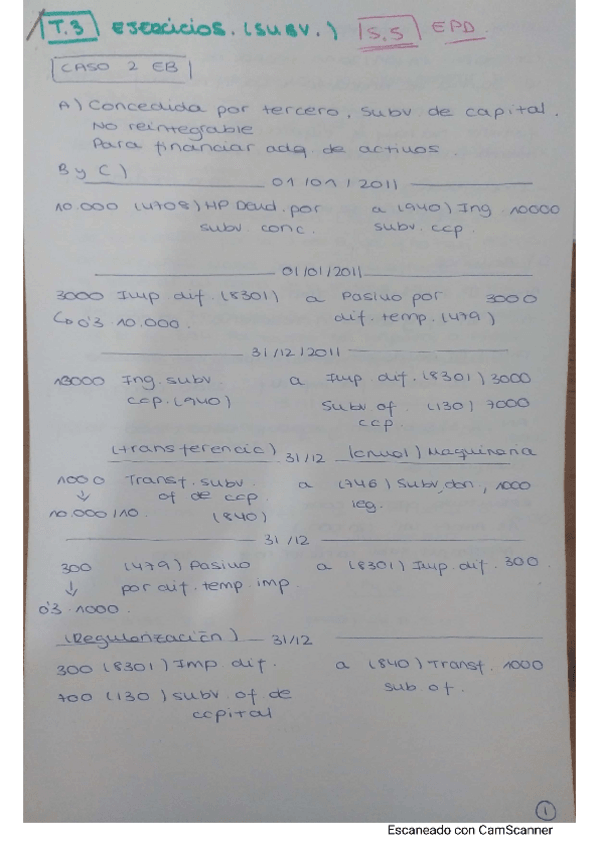 T.3 EJERCICIOS. (SUBV.) S.5 EPD
CASO 2 EB
A) Concedida por tercero, subv. de capital.
No reintegrable
Para financiar adq. de activos.
B y C)
01/01/2011
10.000 (4708) HP Deud. por a (940) Ing. 10000
subv. conc. subv. ccp.
01/01/2011
3000 Imp. dif. (8301) a Pasivo por 3000
↳ 0'3 10.000. dif. temp. (479)
31/12/2011
10000 Ing. subv. a Imp dif. (8301) 3000
ccp. (940) Subv of. (130) 7000
ccp.
(transferencia) 31/12 (anual) Maquinaria
1000 Transf. subv. a (746) Subv, don, 1000
↓ of de ccp. leg.
10.000/10 (840)
31/12
300 (479) Pasivo a (8301) Imp. dif. 300.
↓ por dif. temp. imp.
0'3 · 1000.
(Regularización) 31/12
300 (8301) Imp dif. a (840) Transf. 1000
700 (130) subv. of de sub. of.
capital
1
Escaneado con CamScanner